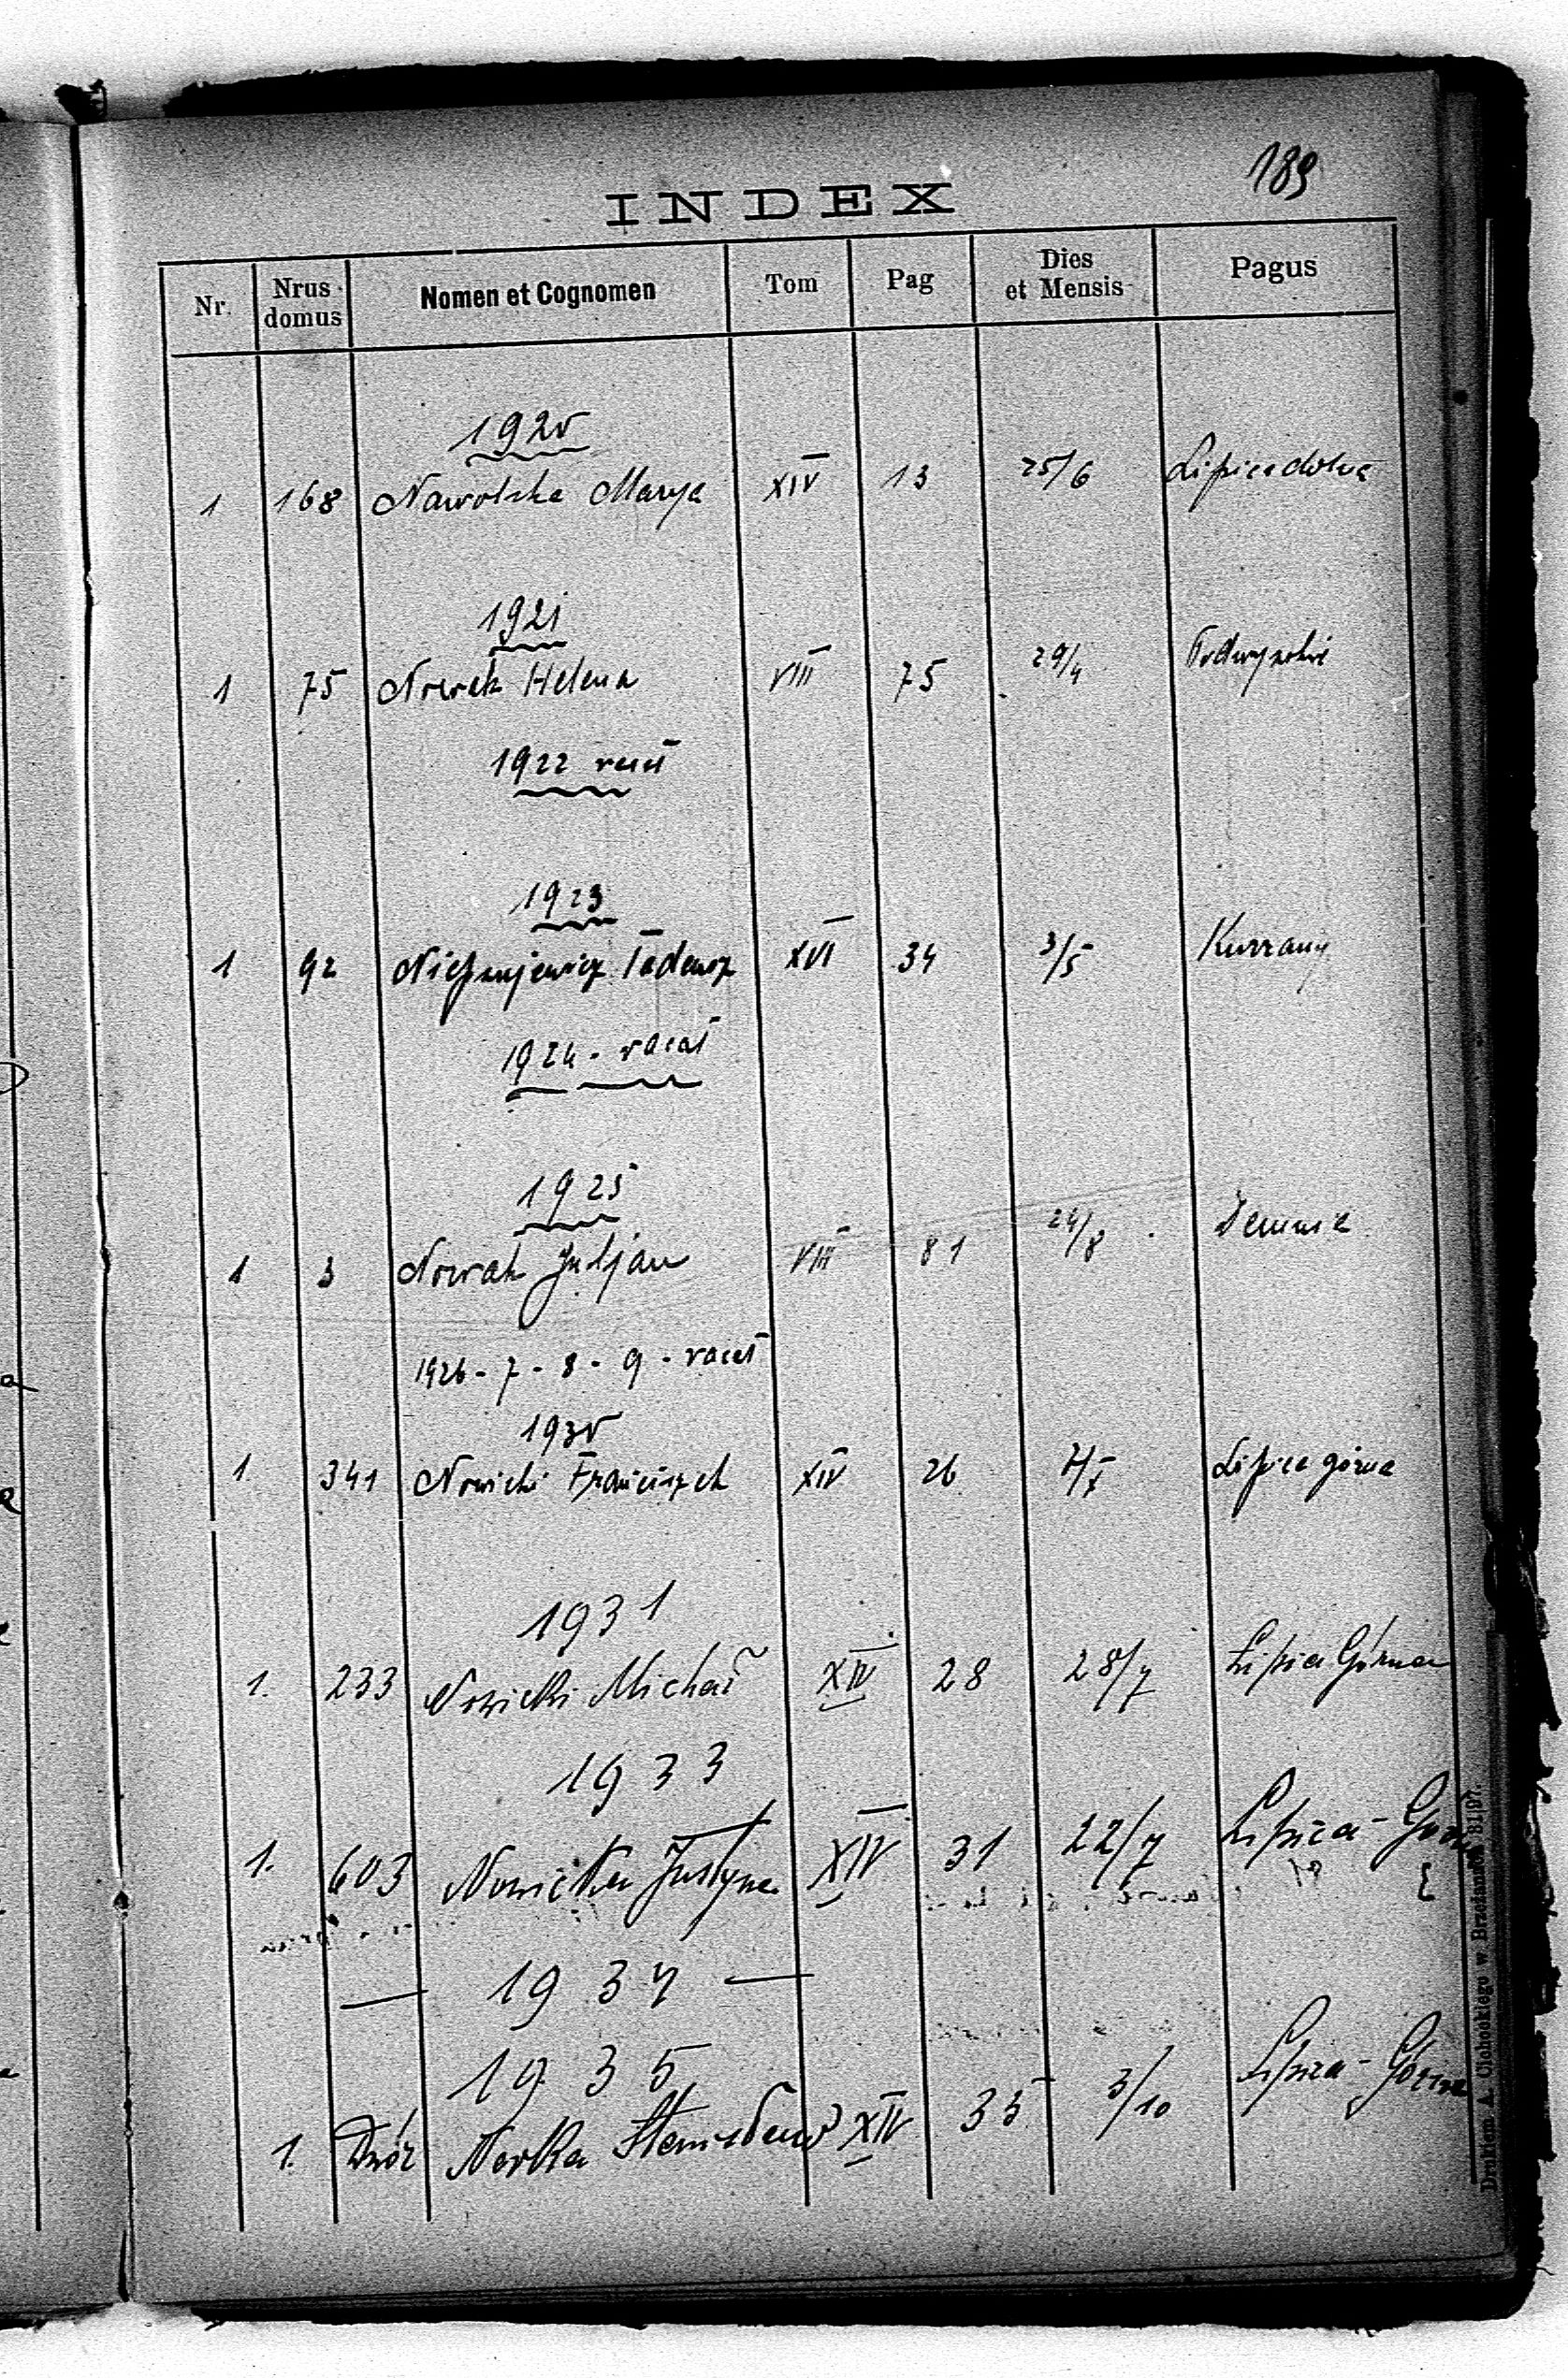 189
INDEX
Nr. Nrus domus Nomen et Cognomen Tom Pag Dies et Mensis Pagus
1920
1 168 Nawolska Marya XIV 13 25/6 Lipica dolna
1921
1 75 Nowak Helena VIII 75 29/4 Podwysokie
1922 vacat
1923
1 92 Tadeusz XVI 34 3/5 Kurzany
1924 - vacat
1925
1 3 Nowak Juljan VIII 81 24/8 Demnia
1926 - 7 - 8 - 9 - vacat
1930
1 341 Nowicki Franciszek XIV 26 Lipica górna
1931
1. 233 Nowicki Michał XIV 28 28/7 Lipica Górna
1933
1. 603 Nowicka Justyna XIV 31 22/7 Lipica - Górna
— 1934 —
1935
1. Dwór Norka Stanisław XIV 35 3/10 Lipica - Górna
Drukiem A. Cichockiego w Brzeżanach 81|97.